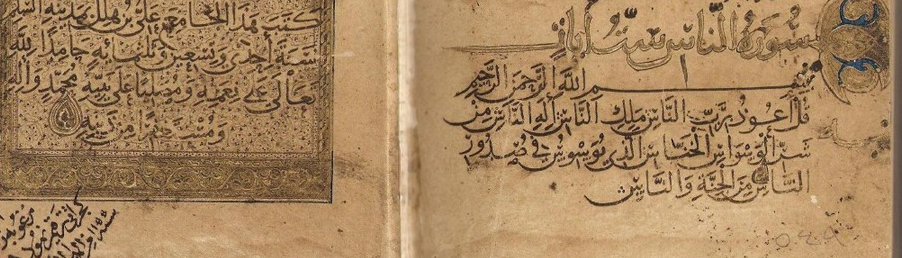 سُورَةُ النَّاسِ سِتُّ أٰيَاتٍ
بِسْمِ اللَّهِ الرَّحْمَنِ الرَّحِيمِ
قُلْ أَعُوذُ بِرَبِّ النَّاسِ مَلِكِ النَّاسِ إِلَهِ النَّاسِ مِنْ
شَرِّ الْوَسْوَاسِ الْخَنَّاسِ الَّذِي يُوَسْوِسُ فِي صُدُورِ
النَّاسِ مِنَ الْجِنَّةِ وَالنَّاسِ
كَتَبَ هَذَا الْجَامِعَ عَلِيُّ بْنُ هِلَالٍ بِمَدِينَةِ السَّلَمِ
سَنَةَ إِحْدَى وَتِسْعِينَ وَثَلَثِمِائَةٍ حَامِدًا لِلَّهِ
تَعَالَى عَلَى نِعَمِهِ وَمُصَلِّيًا عَلَى نَبِيِّهِ مُحَمَّدٍ وَآلِهِ
وَمُسْتَغْفِرًا مِنْ ذَنْبِهِ